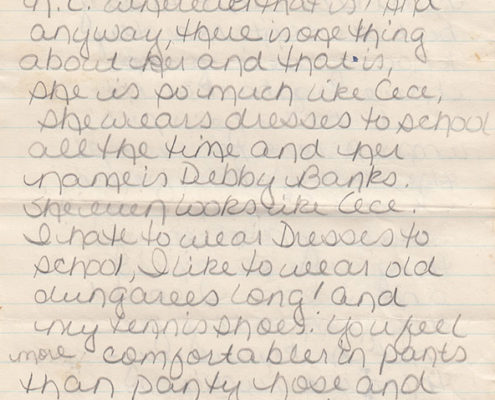 N.C. wherever that is! And
anyway, there is one thing
about her and that is,
she is so much like Cece,
she wears dresses to school
all the time and her
name is Debby Banks.
She even looks like Cece.
I hate to wear Dresses to
school, I like to wear old
dungarees long! and
my tennis shoes. You feel
more comfortabler in pants
than panty hose and